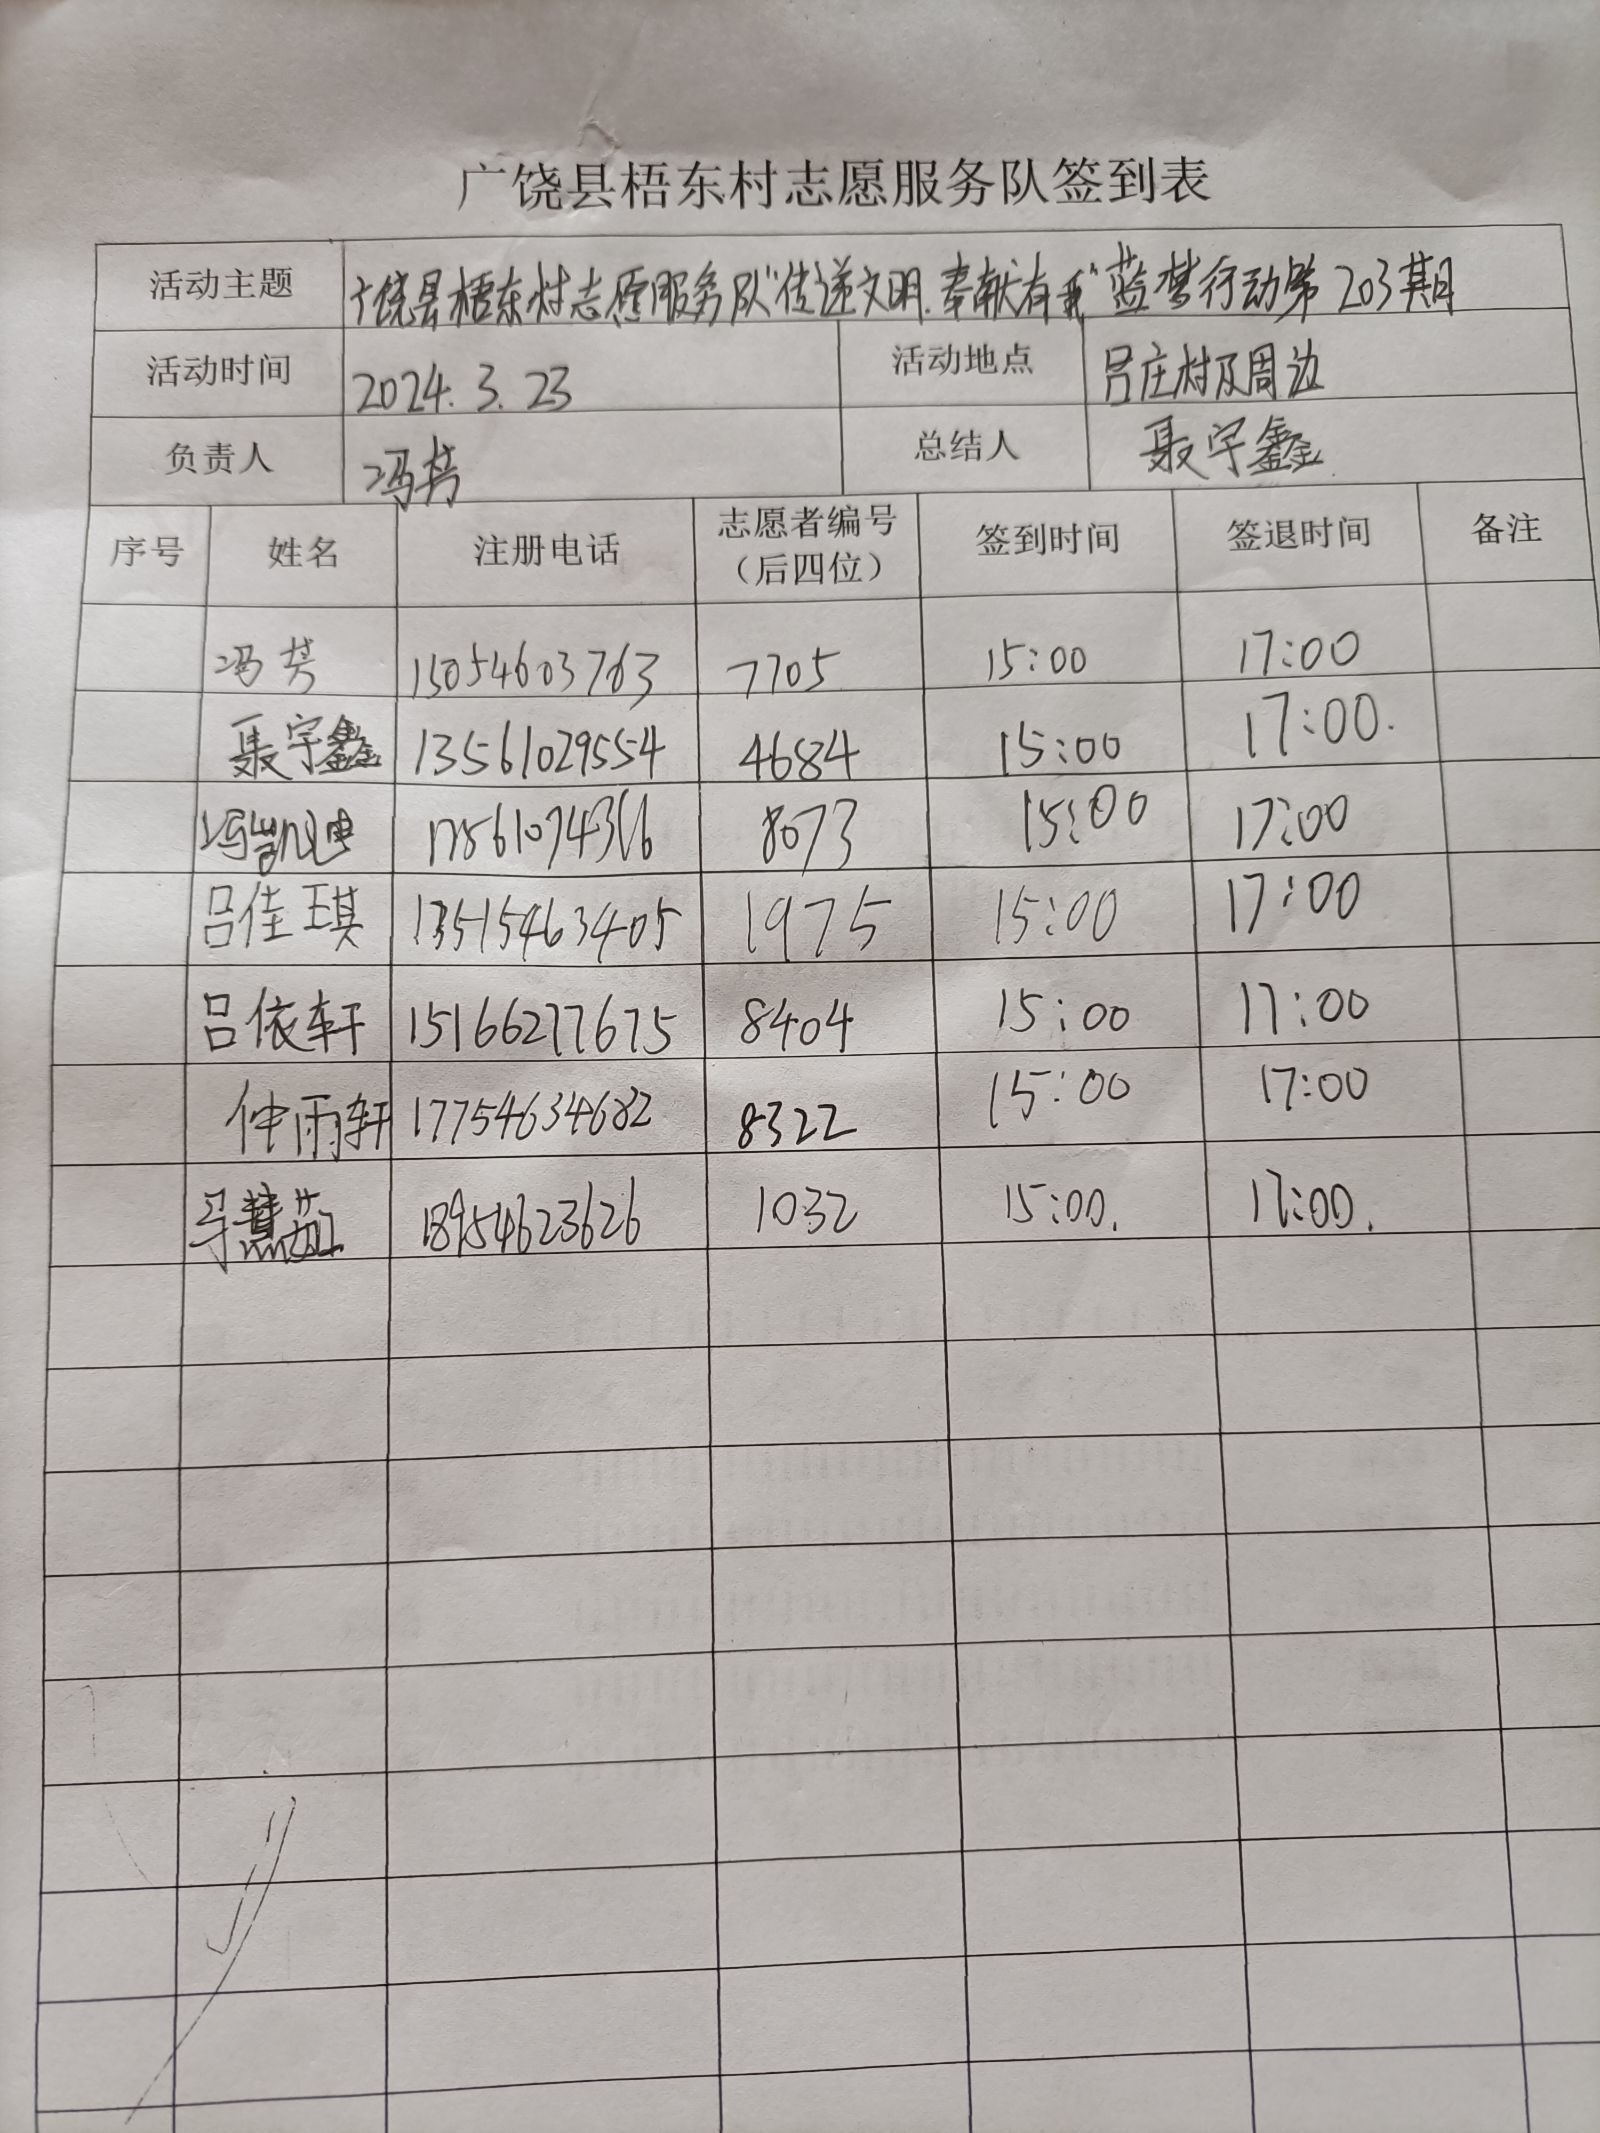 广饶县梧东村志愿服务队签到表
活动主题 广饶县梧东村志愿服务队“传递文明.奉献有我”蓝梦行动第203期
活动时间 2024.3.23 活动地点 吕庄村及周边
负责人 冯芳 总结人 聂宇鑫
序号 姓名 注册电话 志愿者编号（后四位） 签到时间 签退时间 备注
冯芳 15054603763 7705 15:00 17:00
聂宇鑫 13561029554 4684 15:00 17:00.
冯凯迪 17561074366 8073 15:00 17:00
吕佳琪 13515463405 1975 15:00 17:00
吕依轩 15166277675 8404 15:00 17:00
仲雨轩 17754634682 8322 15:00 17:00
马慧茹 18954623626 1032 15:00. 17:00.